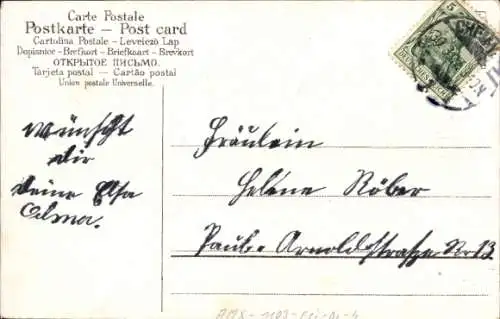 Carte Postale
Postkarte — Post card
Cartolina Postale - Levelező Lap
Dopisnice - Brefkort - Briefkaart - Brevkort
ОТКРЫТОЕ ПИСЬМО.
Tarjeta postal — Cartão postal
Union postale Universelle.
5
CHEM
DEUTSCHES REICH
wünscht
dir
deine Elsa
Alma.
Fräulein
Helene Röber
Paul-Arnoldstraße Nr 13